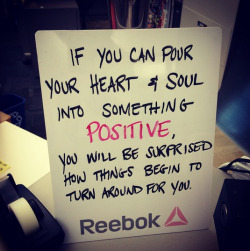 IF YOU CAN POUR
YOUR HEART & SOUL
INTO SOMETHING
POSITIVE,
YOU WILL BE SURPRISED
HOW THINGS BEGIN TO
TURN AROUND FOR YOU.
Reebok